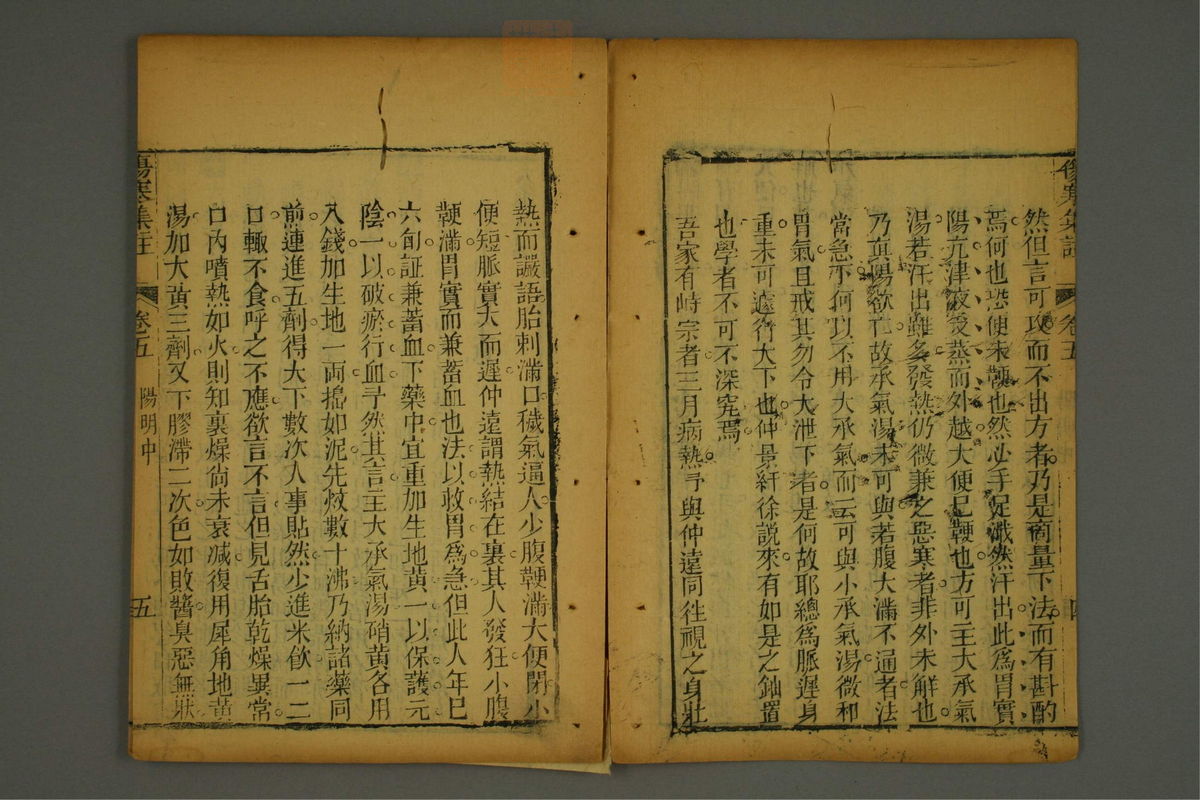 傷寒集註
卷五
四
然但言可攻而不出方者乃是商量下法而有斟酌
焉何也恐便未鞕也然必手足濈然汗出此爲胃實
陽亢津液受蒸而外越大便已鞕也方可主大承氣
湯若汗出雖多發熱仍微兼之惡寒者非外未解也
乃眞陽欲亡故承氣湯未可與若腹大滿不通者法
當急下何以不用大承氣而云可與小承氣湯微和
胃氣且戒其勿令大泄下者是何故耶總爲脈遲身
重未可遽行大下也仲景紆徐説來有如是之鈾置
也學者不可不深究焉
吾家有峙宗者三月病熱予與仲遠同徃視之身壯
熱而讝語胎刺滿口穢氣逼人少腹鞕滿大便閉小
便短脈實大而遲仲遠謂熱結在裏其人發狂小腹
鞕滿胃實而兼蓄血也法以收胃爲急但此人年巳
六旬証兼蓄血下藥中宜重加生地黄一以保護元
陰一以破瘀行血予然其言主大承氣湯硝黄各用
八錢加生地一両搗如泥先炆數十沸乃納諸藥同
前連進五劑得大下數次人事貼然少進米飮一二
口輙不食呼之不應欲言不言但見舌胎乾燥異常
口內噴熱如火則知裏燥尙未衰減復用犀角地黄
湯加大黄三劑又下膠滯二次色如敗醬臭惡無狀
傷寒集註
卷五
陽明中
五